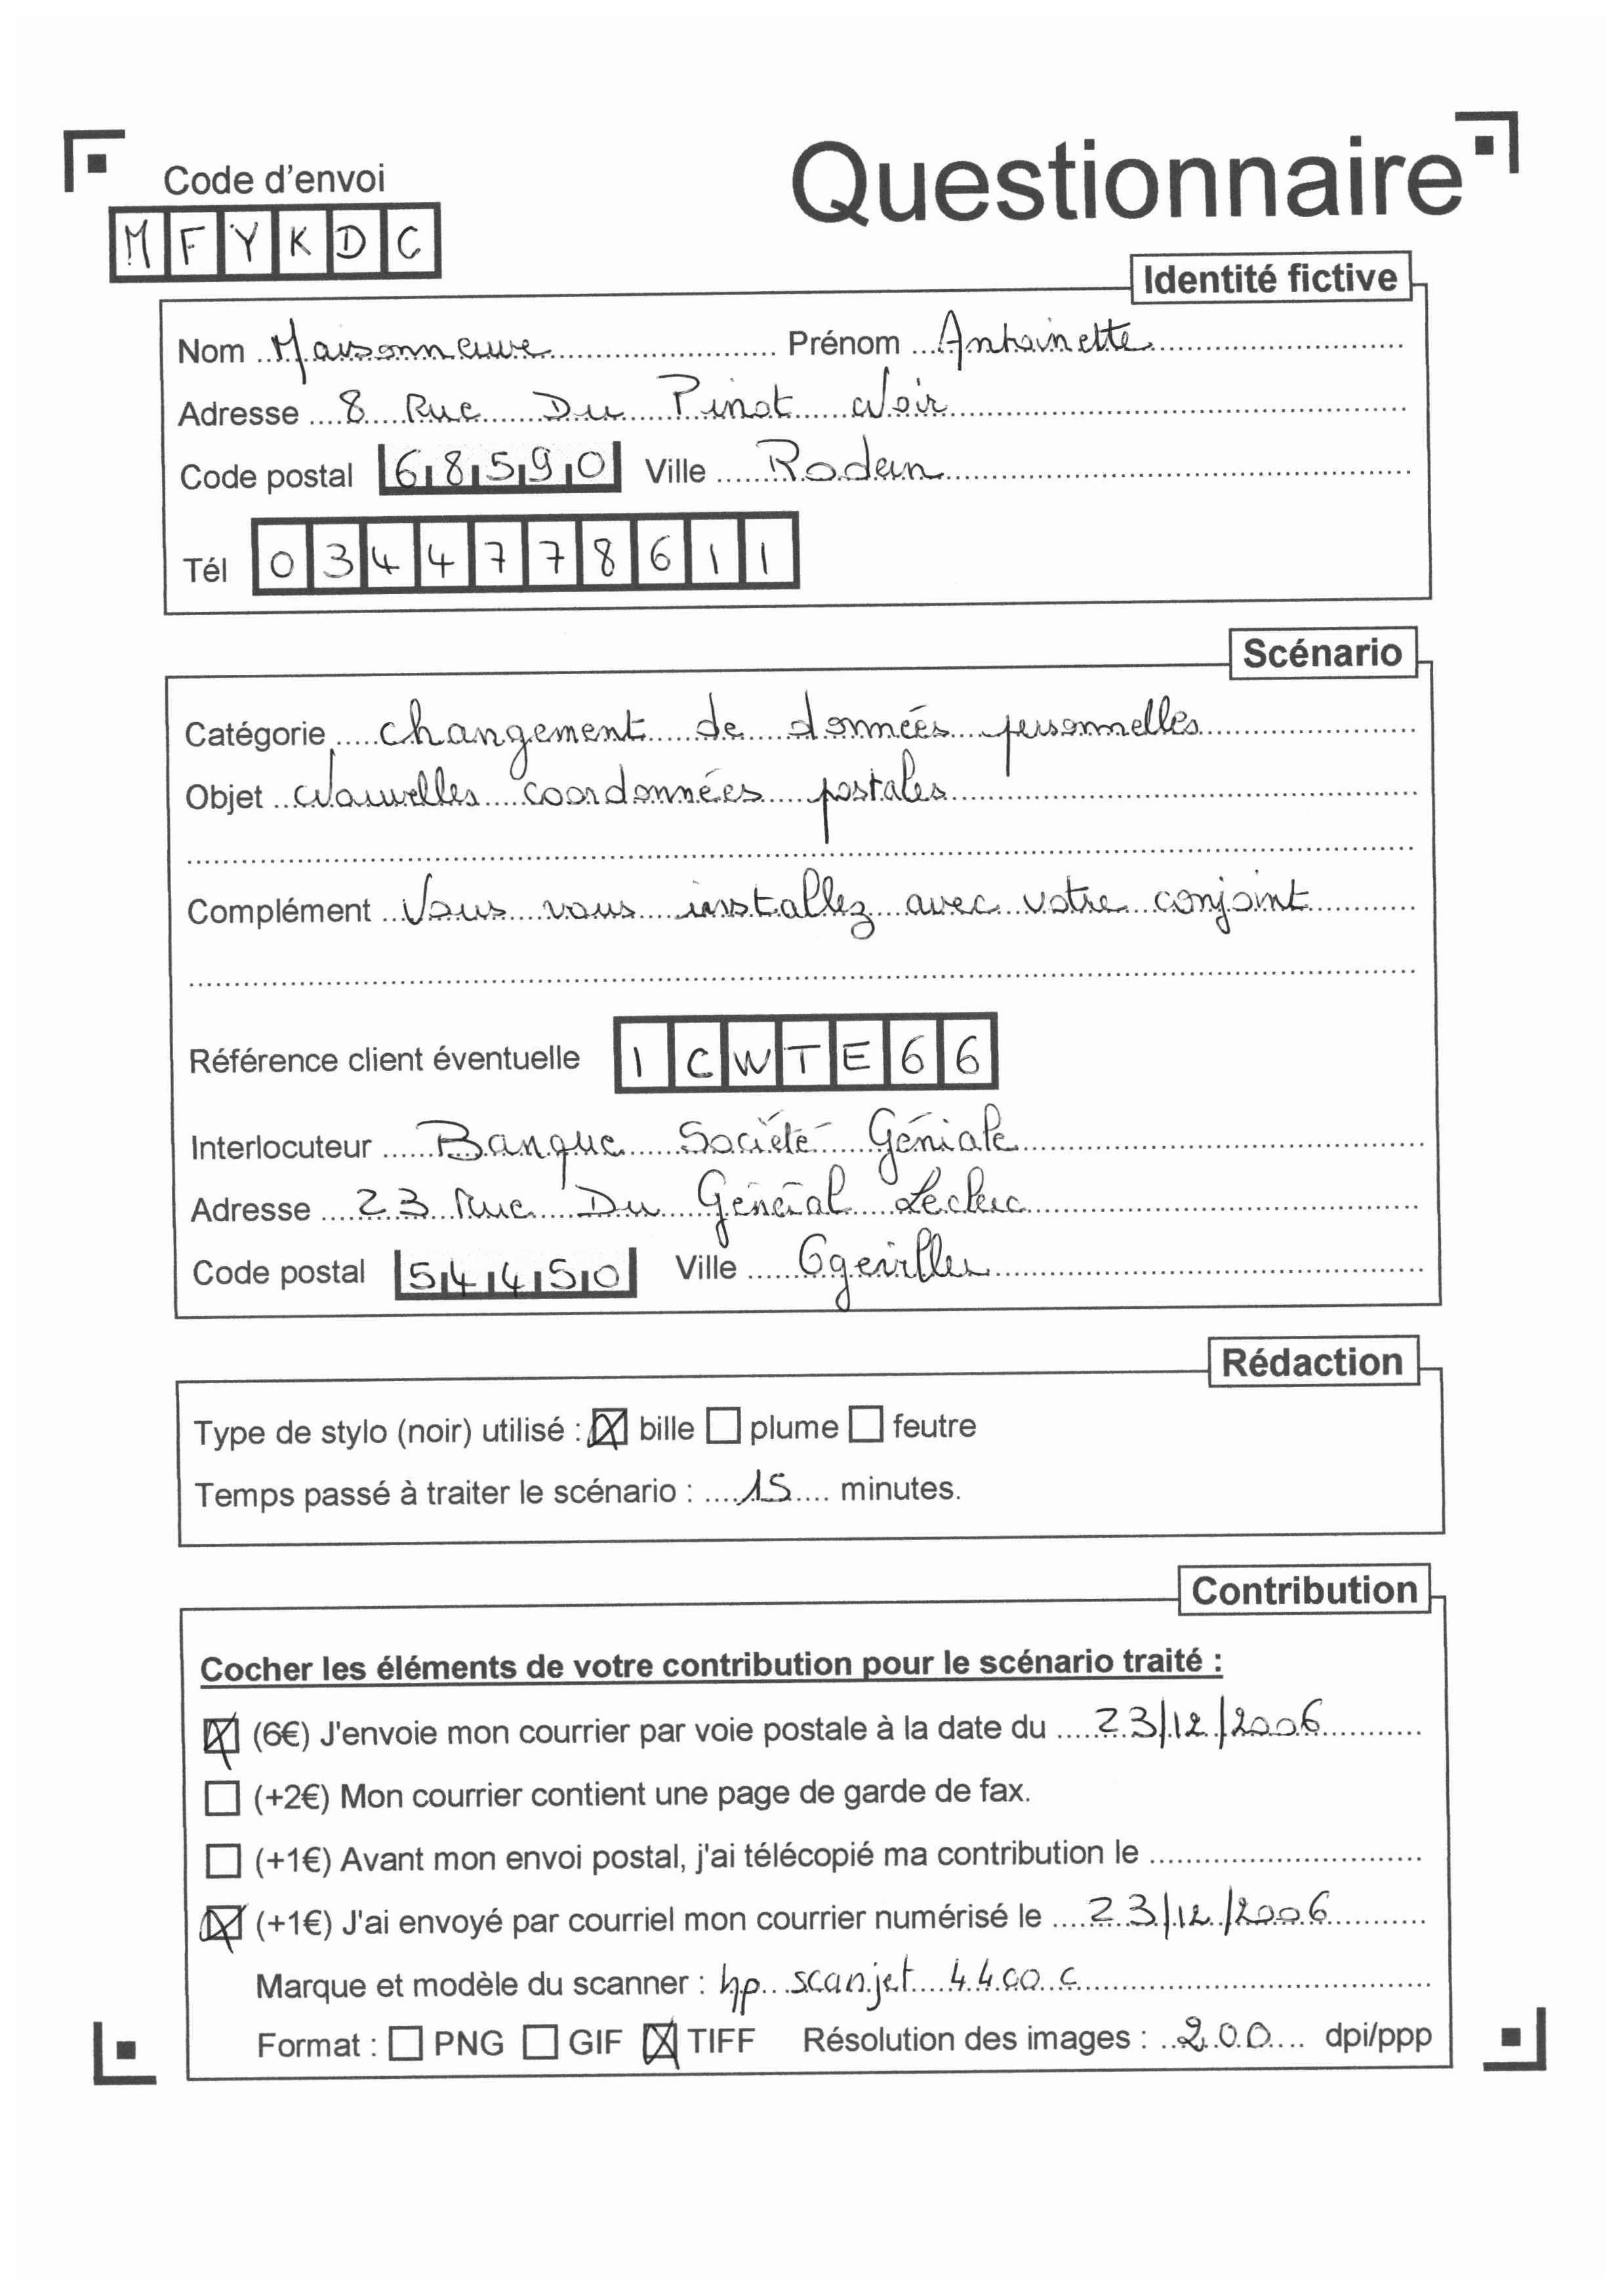 Questionnaire
Code d'envoi
M F Y K D C
Identité fictive
Nom Maisonneuve Prénom Antoinette
Adresse 8 Rue Du Pinot Noir
Code postal 68590 Ville Rodern
Tél 0344778611
Scénario
Catégorie changement de données personnelles
Objet Nouvelles coordonnées postales
Complément Vous vous installez avec votre conjoint
Référence client éventuelle I C W T E 6 6
Interlocuteur Banque Société Géniale
Adresse 23 Rue Du Général Leclerc
Code postal 54450 Ville Ogéviller
Rédaction
Type de stylo (noir) utilisé : ☒ bille ☐ plume ☐ feutre
Temps passé à traiter le scénario : 15 minutes.
Contribution
Cocher les éléments de votre contribution pour le scénario traité :
☒ (6€) J'envoie mon courrier par voie postale à la date du 23/12/2006
☐ (+2€) Mon courrier contient une page de garde de fax.
☐ (+1€) Avant mon envoi postal, j'ai télécopié ma contribution le
☒ (+1€) J'ai envoyé par courriel mon courrier numérisé le 23/12/2006
Marque et modèle du scanner : hp scanjet 4400 c
Format : ☐ PNG ☐ GIF ☒ TIFF Résolution des images : 200 dpi/ppp